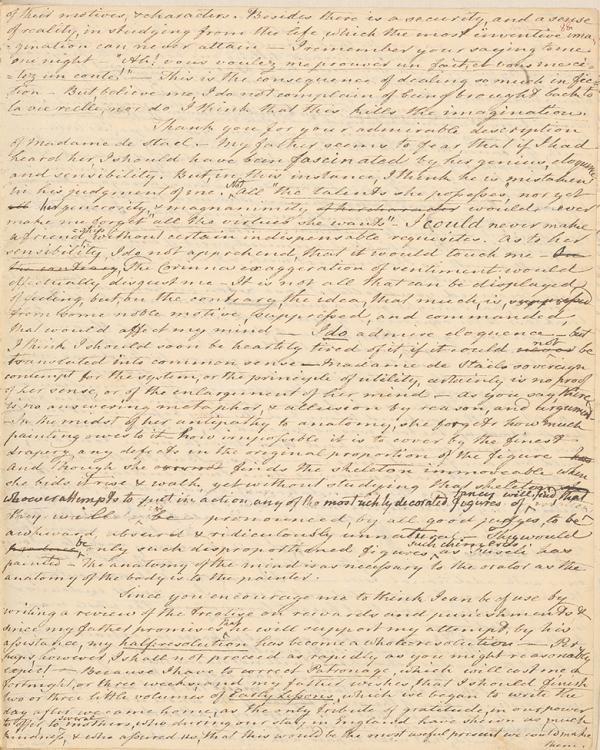 of their motives, & characters. Besides there is a security, and a sense
of reality, in studying from the life, which the most inventive ima-
-gination can never attain — I remember your saying to me
one night — "Ah! vous voulez me prouver un fait et vous me ci-
-tez un conte!" — This is the consequence of dealing so much in fic-
-tion — But believe me, I do not complain of being brought back to
la vie reelle, nor do I think that this kills the imagination.
Thank you for your admirable description
of Madame de Stael — My father seems to fear that if I had
heard her, I should have been fascinated by her genius, eloquence
and sensibility. But, in this instance, I think he is mistaken
in his judgment of me. Not all "the talents she possesses," nor yet
all her generosity, & magnanimity of her character would ever
make me forget "all the virtues she wants" — I could never make
a friendship without certain indispensable requisites. As to her
sensibility, I do not apprehend, that it would touch me —
the contrary, the Corinna exaggeration of sentiment would
effectually disgust me. It is not all that can be displayed
of feeling, but, on the contrary the idea, that much, is
from some noble motive, suppressed, and commanded,
that would affect my mind — I do admire eloquence — but
I think I should soon be heartily tired of it, if it could not be
translated into common sense — Madame de Staels sovereign
contempt for the system, or the principle of utility, certainly is no proof
of her sense, or of the enlargement of her mind — As you say there
is no answering metaphor, & allusion by reason, and argument
In the midst of her antipathy to anatomy, she forgets how much
painting owes to it — how impossible it is to cover by the finest
drapery any defects in the original proportion of the figure —
And though she finds the skeleton immoveable when
she bids it rise & walk, yet without studying that skeleton
whoever attempts to put in action any of the most richly decorated figures of fancy will find that
they will be pronounced, by all good judges, to be
awkward, absurd & ridiculously unnatural — They would
be only such disproportioned figures, such chimeras, as Fuseli has
painted — The anatomy of the mind is as necessary to the orator as the
anatomy of the body is to the painter.
Since you encourage me to think I can be of use by
writing a review of the Treatise on rewards and punishments &
since my father promises that he will support my attempt, by his
assistance, my half resolution has become a whole resolution — Per-
-haps, however, I shall not proceed as rapidly as you might reasonably
expect — Because I have to correct Patronage, which will cost me a
fortnight, or three weeks, and my father wishes, that I should finish
two or three little volumes of Early Lessons, which we began to write the
day after we came home, as the only tribute of gratitude, in our power
to offer to several mothers, who during our stay, in England have shewn us much
kindness, & who assured us, that this would be the most useful present we could make
them.